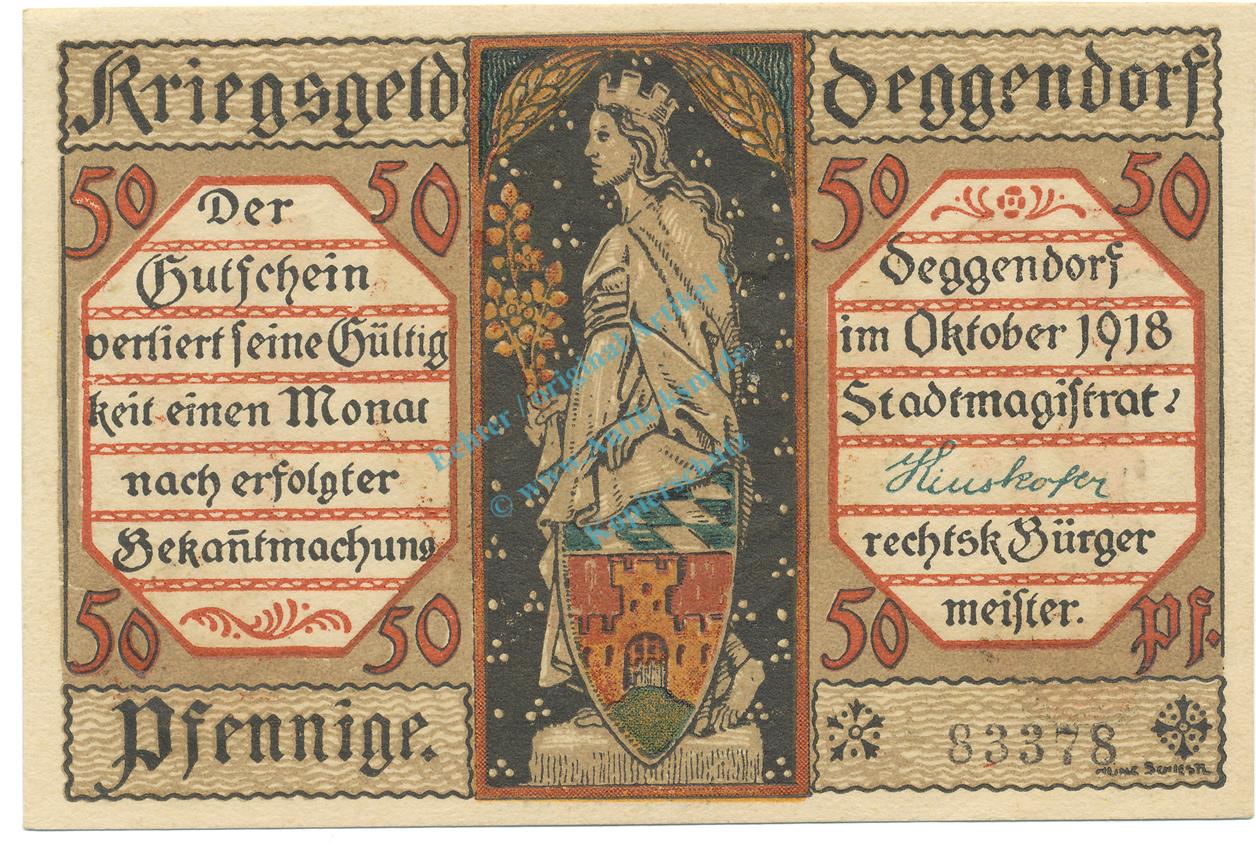 Kriegsgeld
Deggendorf
50 50
Der
Gutschein
verliert seine Gültig
keit einen Monat
nach erfolgter
Bekan̄tmachung
50 50
Pfennige.
50 50
Deggendorf
im Oktober 1918
Stadtmagistrat:
rechtsk Bürger
meister.
50 Pf.
83378
Echter / original Artikel !
© www.Antik1.de
Kopierschutz